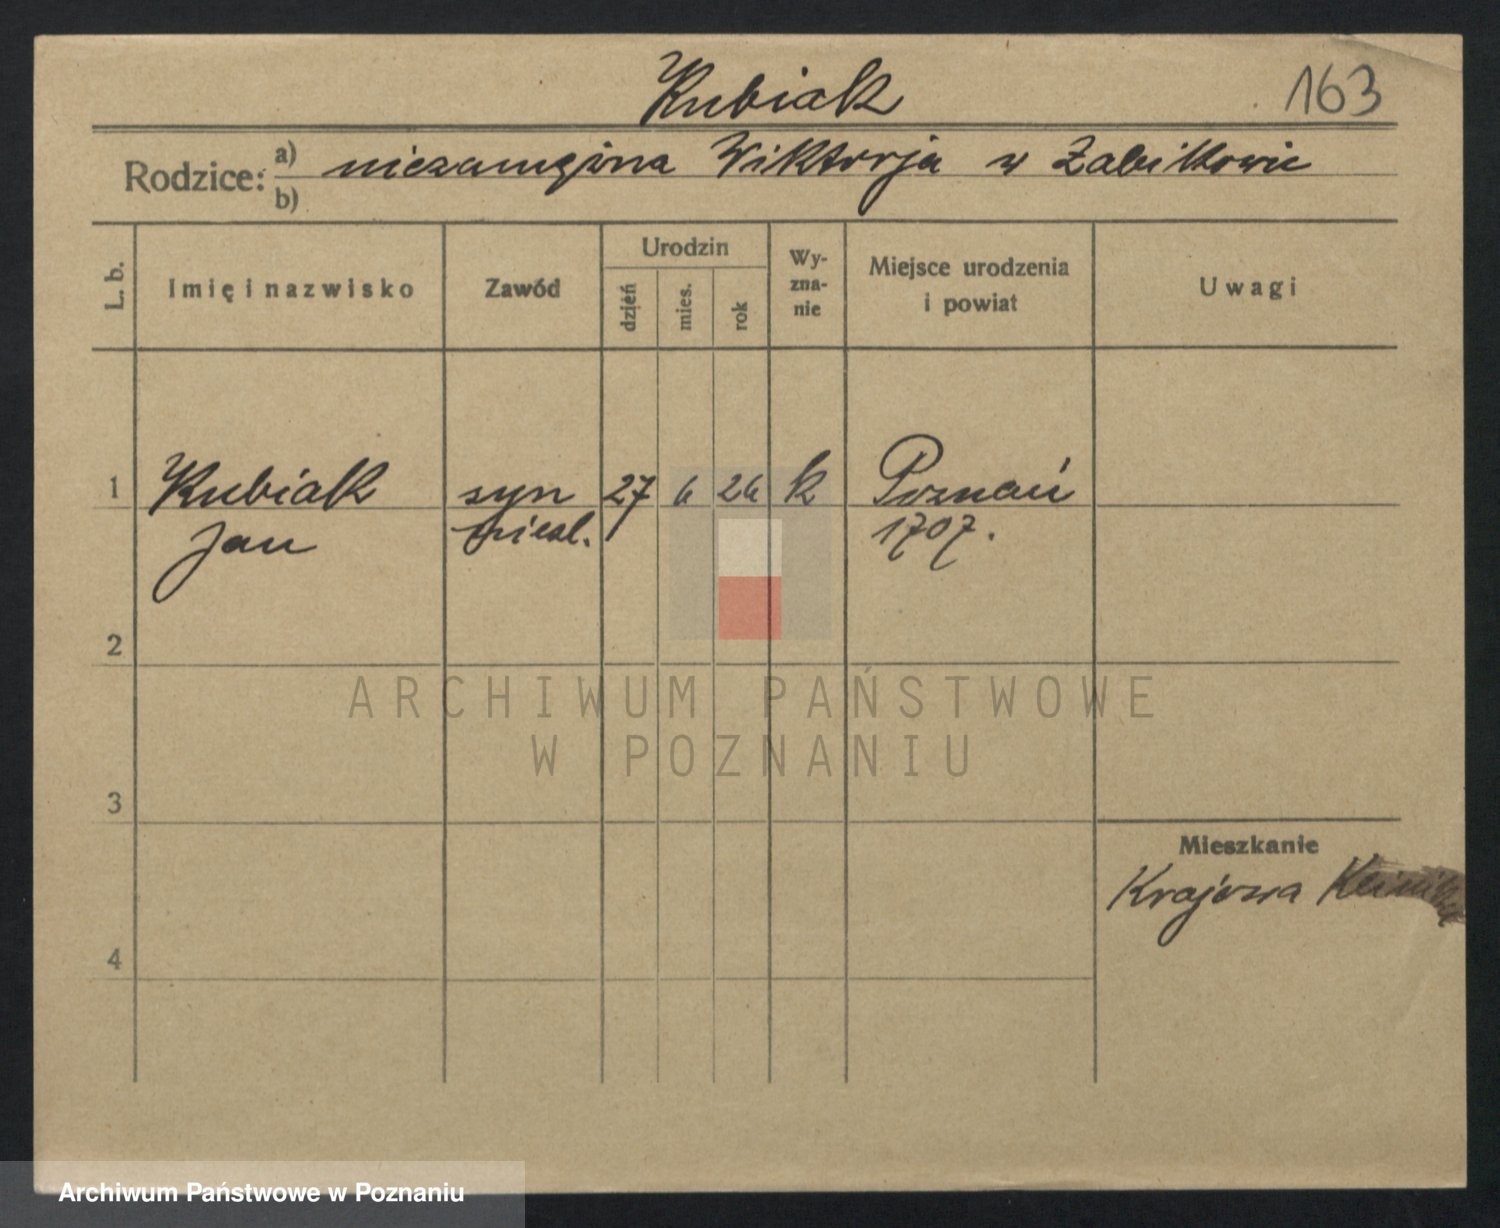 Kubiak
163
Rodzice: a) niezamężna Wiktorja w Żabikowie
b)
L. b.
Imię i nazwisko
Zawód
Urodzin
dzień
mies.
rok
Wy-
zna-
nie
Miejsce urodzenia
i powiat
Uwagi
1 Kubiak syn 27 6 26 k Poznań
Jan nieśl. 1707.
2
3
4
Mieszkanie
Krajowa Klinika
ARCHIWUM PAŃSTWOWE
W POZNANIU
Archiwum Państwowe w Poznaniu